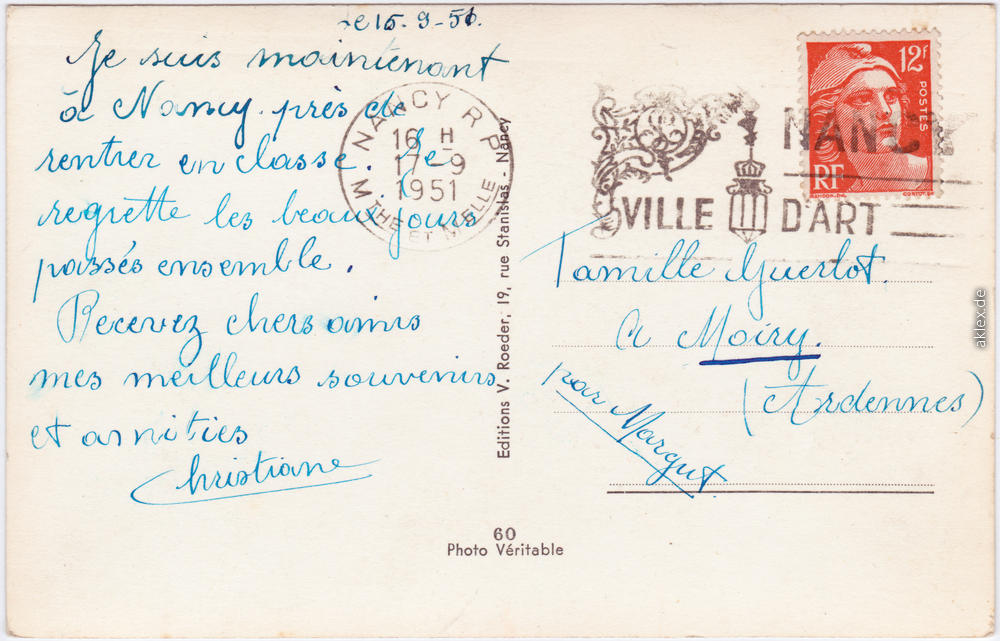 le 15-9-51.
Je suis maintenant
à Nancy près de
rentrer en classe. Je
regrette les beaux jours
passés ensemble.
Recevez chers amis
mes meilleurs souvenirs
et amitiés
Christiane
NANCY R.P.
16 H
17-9
1951
MTHE ET MELLE
Editions V. Roeder, 19, rue Stanislas - Nancy
NANCY
VILLE D'ART
12F
POSTES
RF
GANDON.DEL
Famille Guerlot.
A Moiry.
(Ardennes)
par Margut
60
Photo Véritable
aklex.de